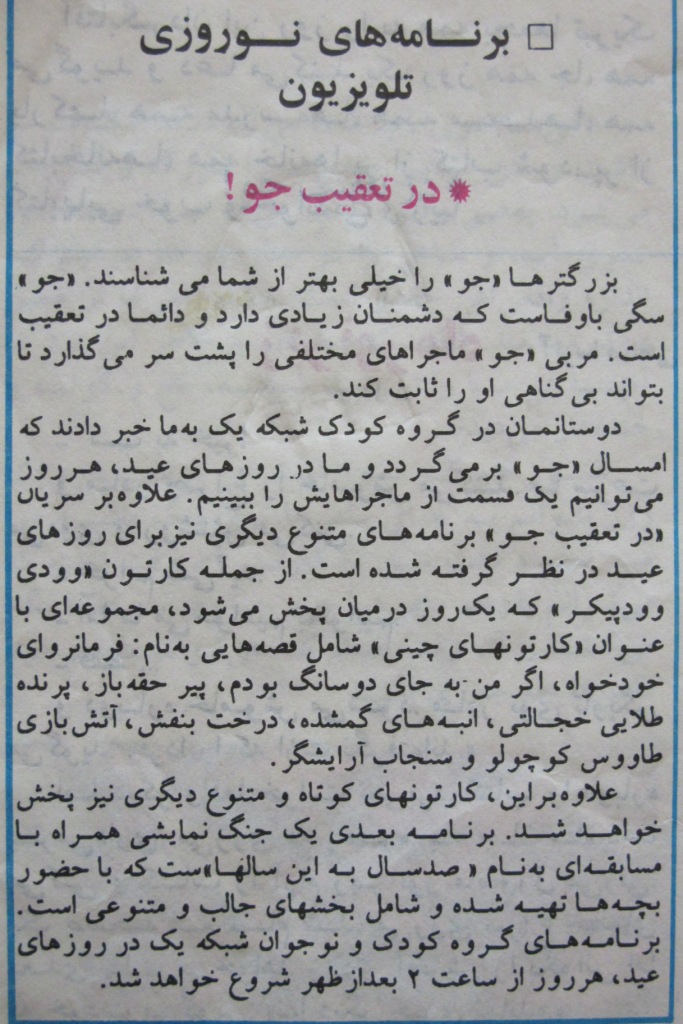 □ برنامه‌های نوروزی
تلویزیون
✹ در تعقیب جو!
بزرگترها «جو» را خیلی بهتر از شما می شناسند. «جو»
سگی باوفاست که دشمنان زیادی دارد و دائما در تعقیب
است. مربی «جو» ماجراهای مختلفی را پشت سر می‌گذارد تا
بتواند بی‌گناهی او را ثابت کند.
دوستانمان در گروه کودک شبکه یک به‌ما خبر دادند که
امسال «جو» برمی‌گردد و ما در روزهای عید، هرروز
می‌توانیم یک قسمت از ماجراهایش را ببینیم. علاوه‌بر سریال
«در تعقیب جو» برنامه‌های متنوع دیگری نیز برای روزهای
عید در نظر گرفته شده است. از جمله کارتون «وودی
وودپیکر» که یک‌روز درمیان پخش می‌شود، مجموعه‌ای با
عنوان «کارتونهای چینی» شامل قصه‌هایی به‌نام: فرمانروای
خودخواه، اگر من به جای دوسانگ بودم، پیر حقه‌باز، پرنده
طلایی خجالتی، انبه‌های گمشده، درخت بنفش، آتش‌بازی
طاووس کوچولو و سنجاب آرایشگر.
علاوه‌براین، کارتونهای کوتاه و متنوع دیگری نیز پخش
خواهد شد. برنامه بعدی یک جنگ نمایشی همراه با
مسابقه‌ای به‌نام « صدسال به این سالها»ست که با حضور
بچه‌ها تهیه شده و شامل بخشهای جالب و متنوعی است.
برنامه‌های گروه کودک و نوجوان شبکه یک در روزهای
عید، هرروز از ساعت ۲ بعدازظهر شروع خواهد شد.